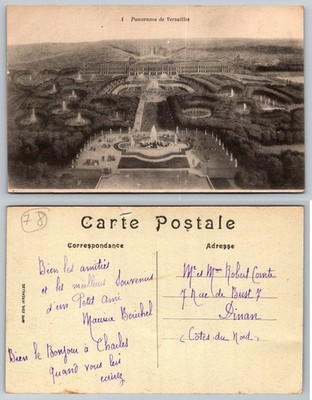 1 Panorama de Versailles
78
Carte Postale
Correspondance
Adresse
Bien les amitiés
et les meilleurs Souvenirs
d'un Petit Ami
Maurice
Bien le Bonjour à Charles
quand vous lui
écrirez
Mr et Mme Robert Comte
7 Rue de 7
Dinan
(Côtes du Nord)